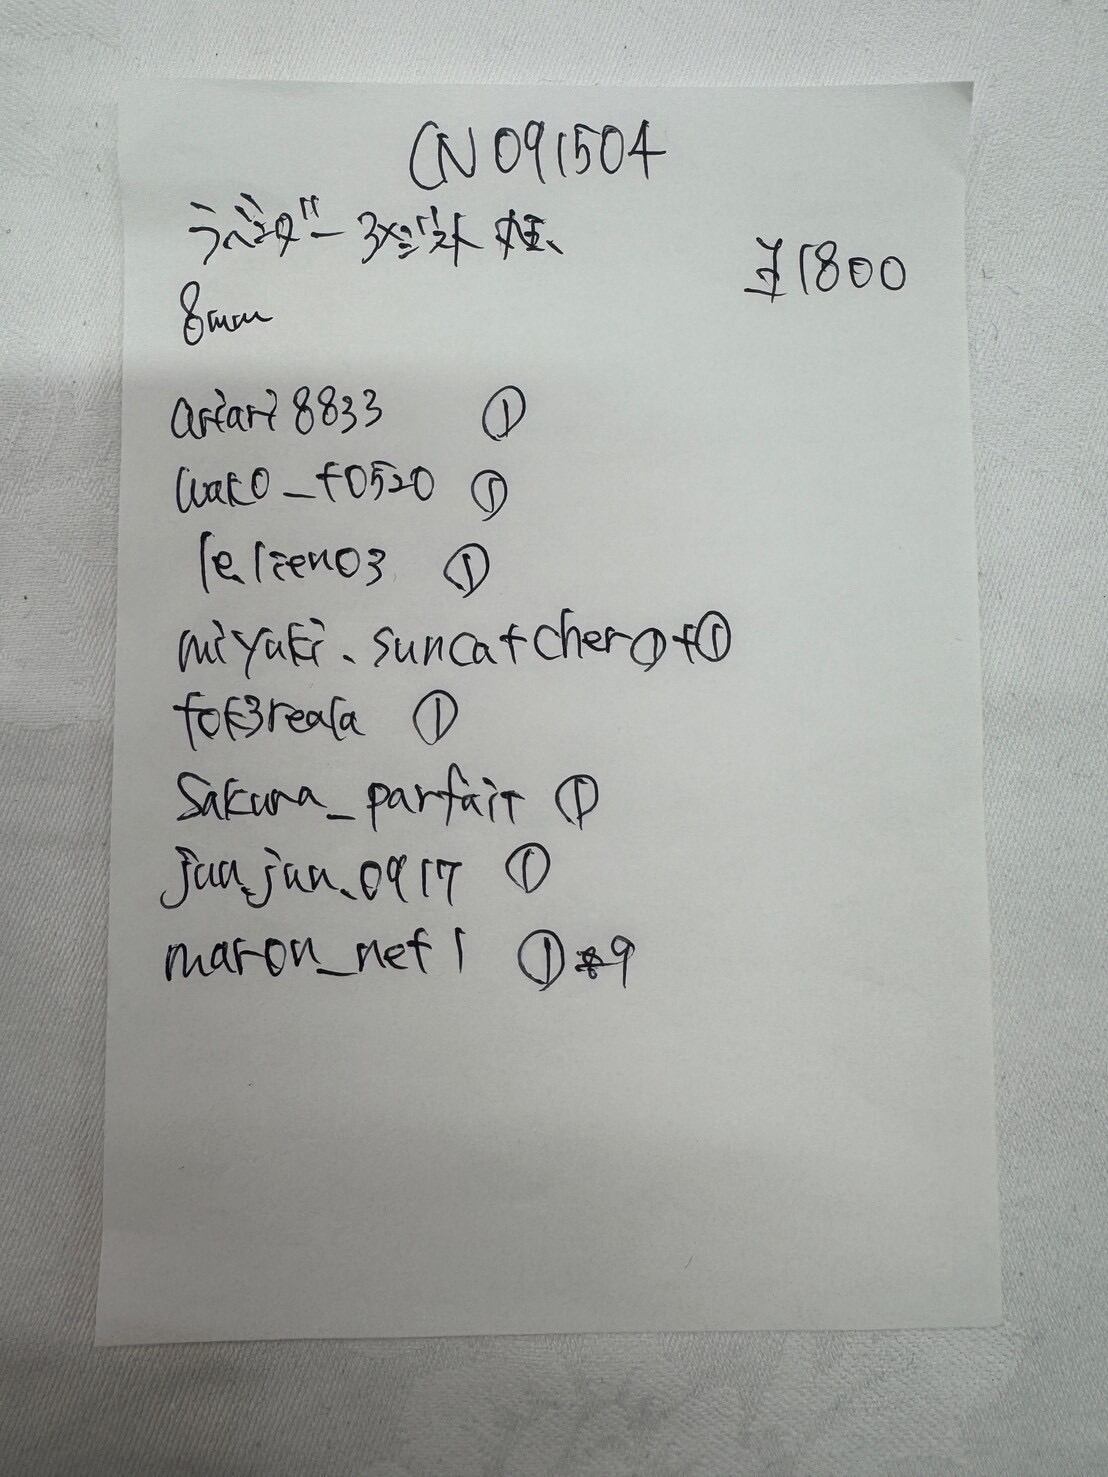 CN091504
¥1800
8mm
ariari8833 ①
wako_t0520 ①
leligen03 ①
miyuki.suncatcher ①+①
tok3reala ①
Sakura_parfait ①
jun.jun.0917 ①
maron_net1 ①*9